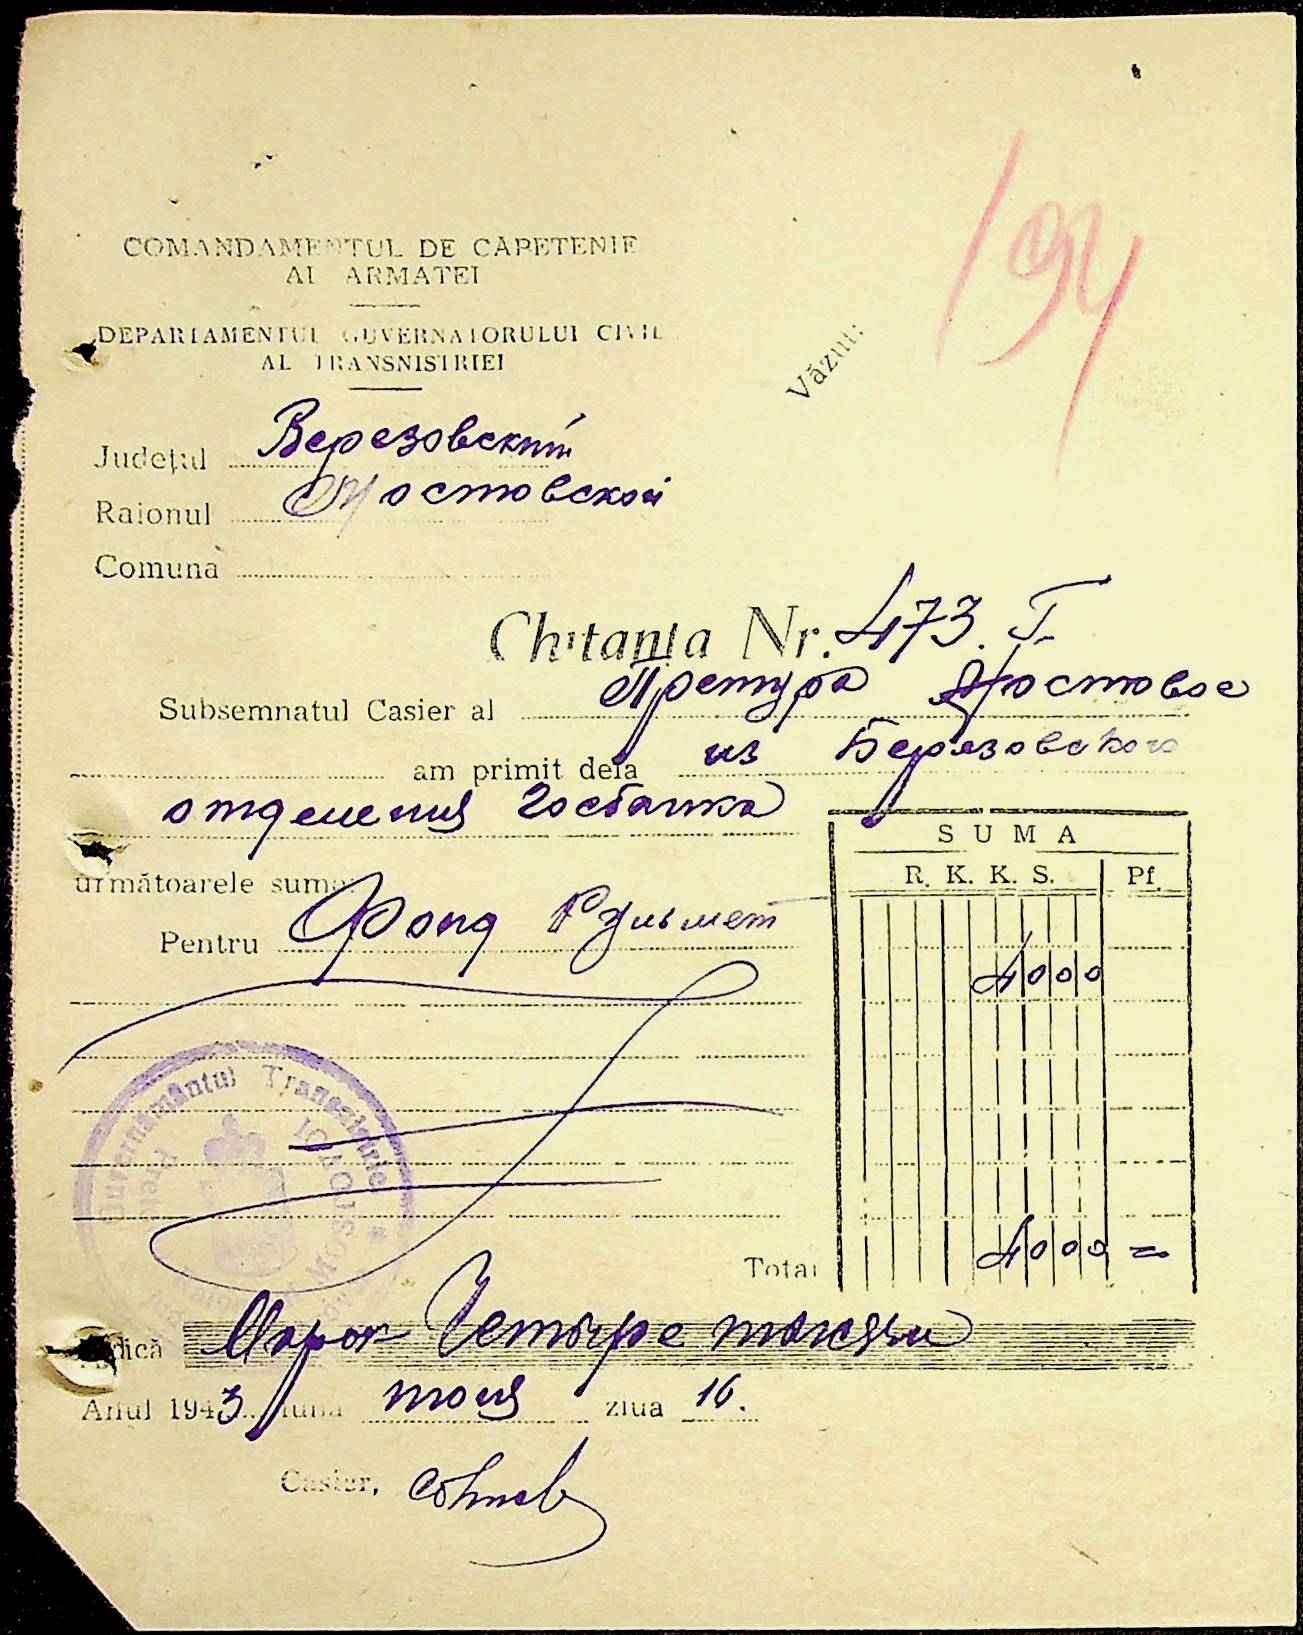 194
COMANDAMENTUL DE CAPETENIE
AL ARMATEI
DEPARTAMENTUL GUVERNATORULUI CIVIL
AL TRANSNISTRIEI
Văzut:
Județul Березовский
Raionul Мостовской
Comuna
Chitanța Nr. 473. Г.
Subsemnatul Casier al Претура Мостовое
am primit dela из Березовского
отделения Госбанка
SUMA
R. K. K. S. Pf.
următoarele sume:
Pentru Фонд
4000
Guvernământul Transnistriei
MOSTOVOI
Total 4000 =
adică Марок Четыре тысячи
Anul 1943 luna июня ziua 16.
Casier,